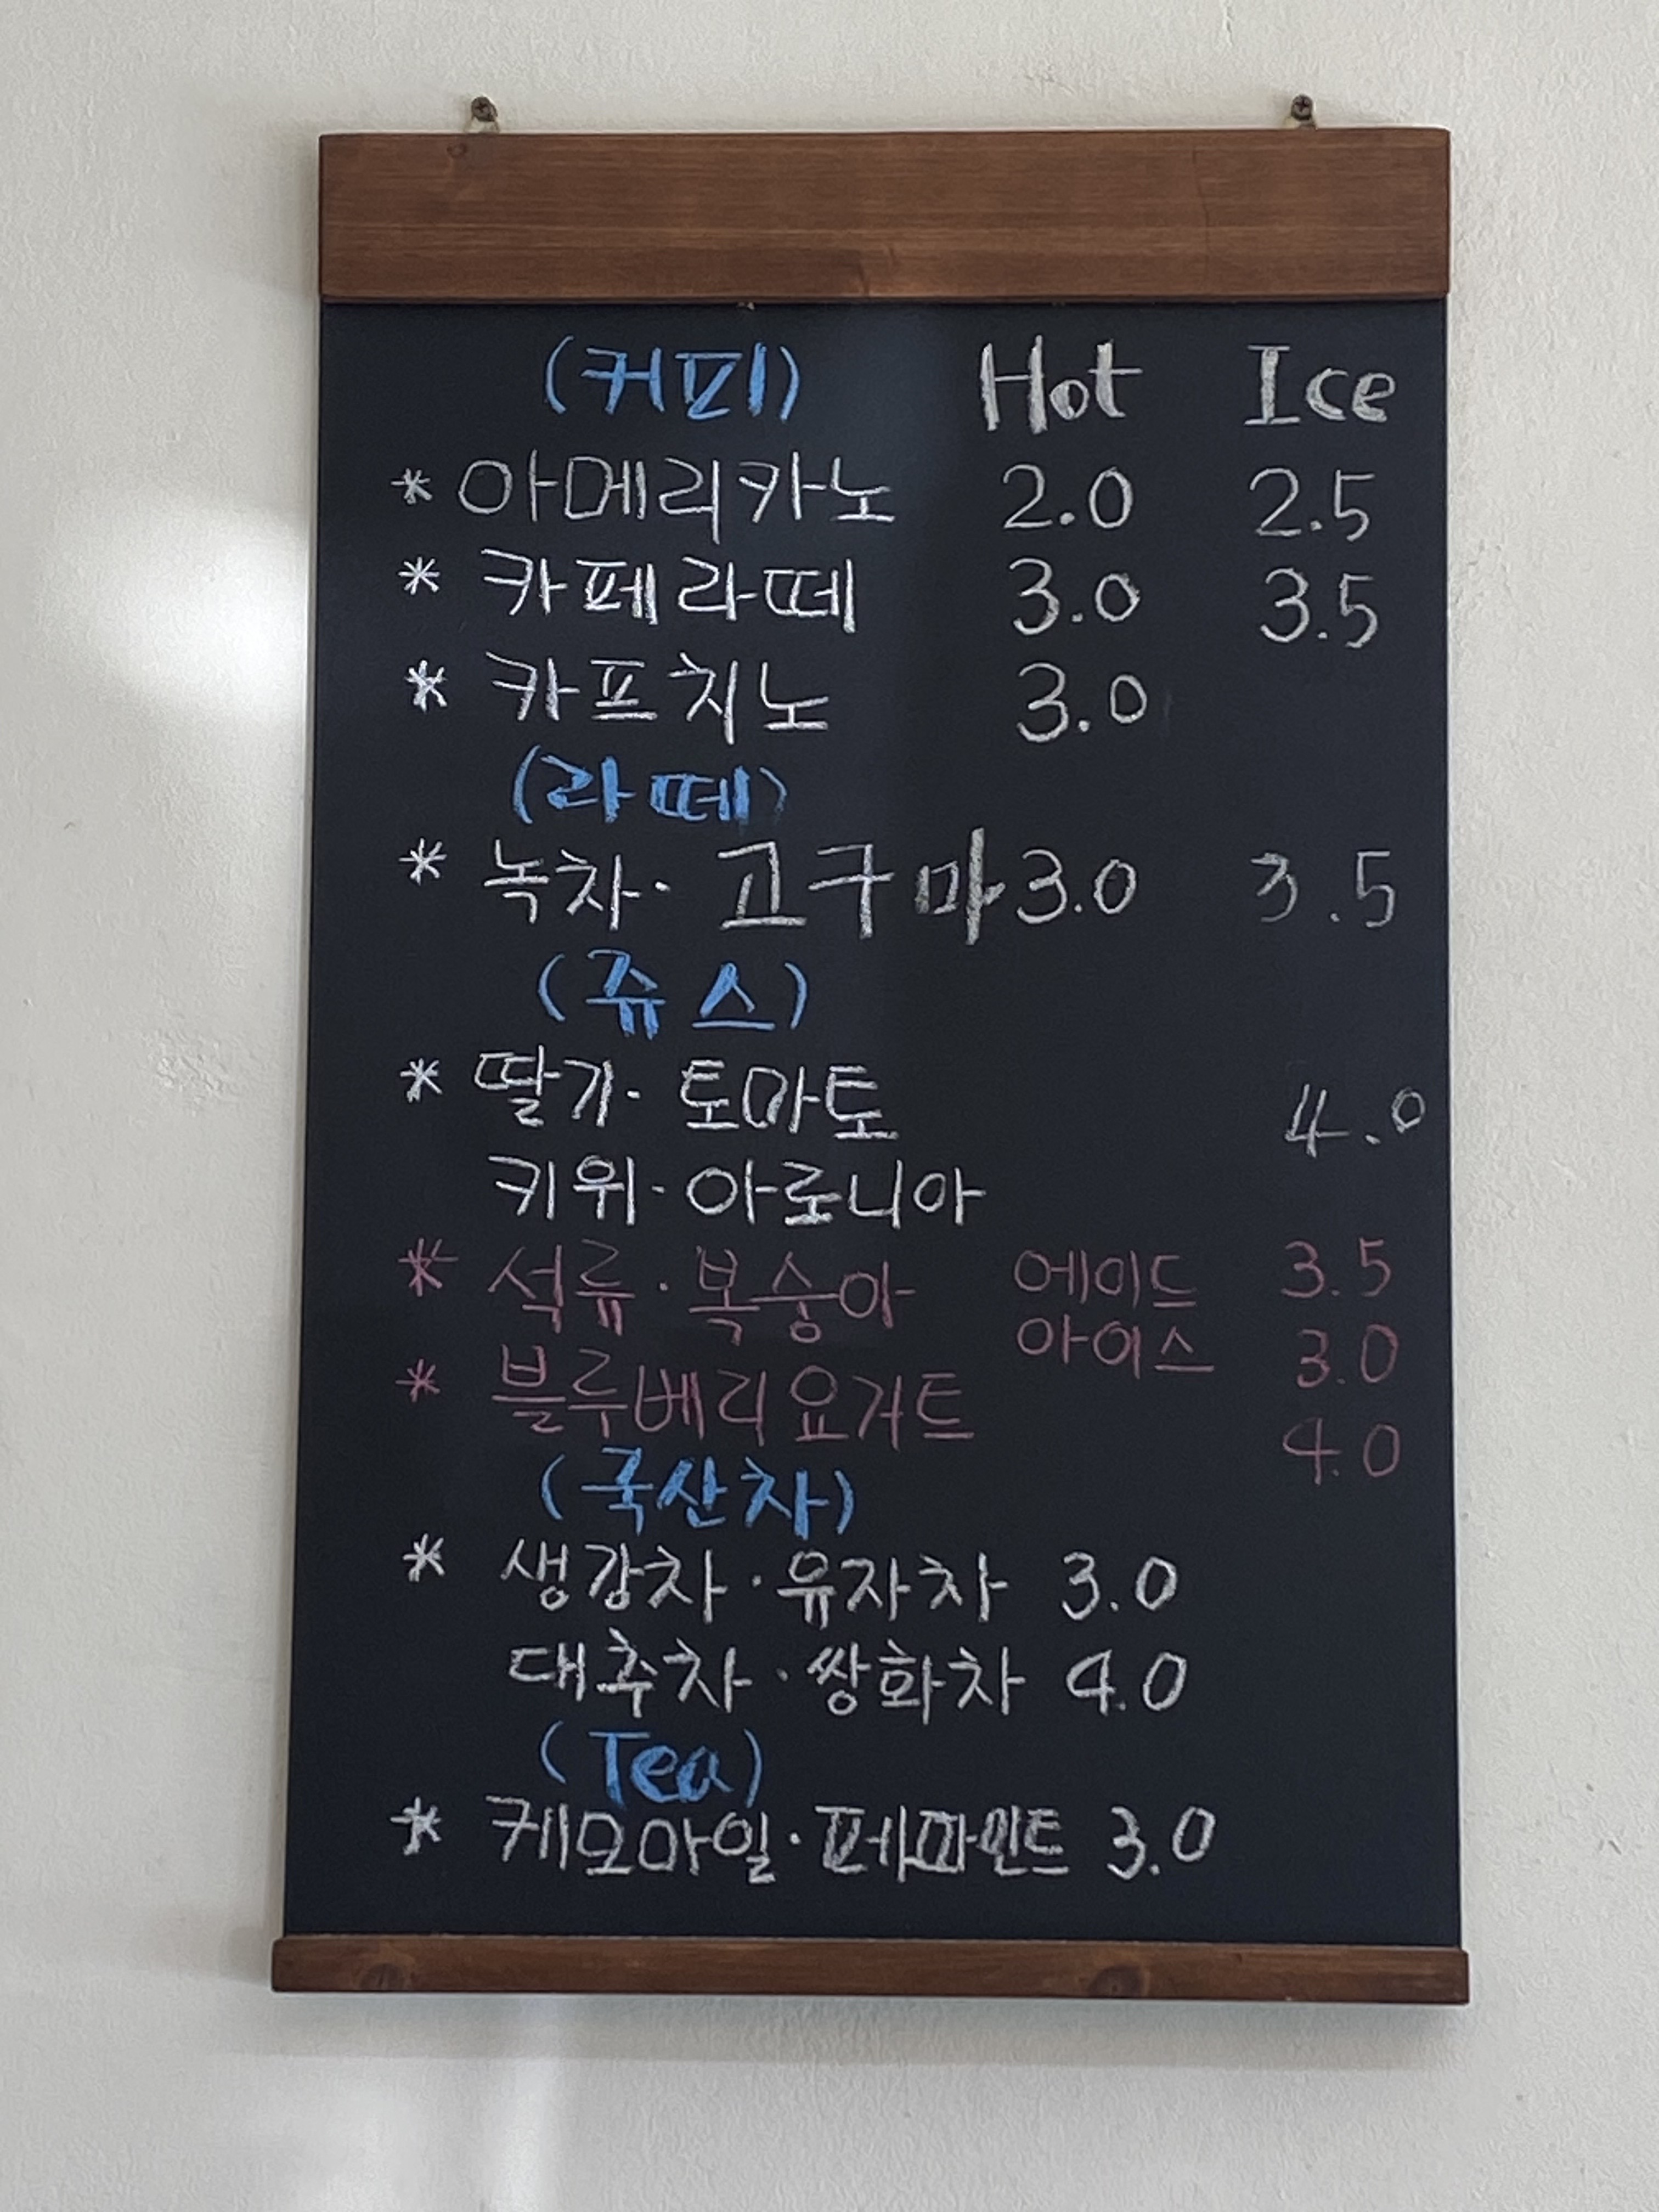 (커피) Hot Ice
* 아메리카노 2.0 2.5
* 카페라떼 3.0 3.5
* 카프치노 3.0
(라떼)
* 녹차· 고구마 3.0 3.5
(쥬스)
* 딸기· 토마토 4.0
키위·아로니아
* 석류·복숭아 에이드 3.5
아이스 3.0
* 블루베리요거트 4.0
(국산차)
* 생강차·유자차 3.0
대추차·쌍화차 4.0
(Tea)
* 케모마일·페파민트 3.0